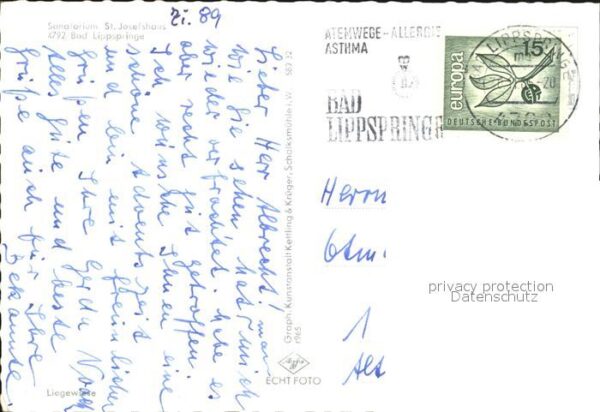 Zi. 89
Sanatorium St. Josefshaus
4792 Bad Lippspringe
Lieber Herr Albrecht!
wie Sie sehen hat man mich
wieder verfrachtet. habe es
aber recht gut getroffen.
Ich wünsche Ihnen eine
schöne Adventszeit
und bin mit freundlichen
Grüßen Ihre Gerda
Alles gute und beste
Grüße auch für Ihre
Bekannte
Liegewiese
Graph. Kunstanstalt Kettling & Krüger, Schalksmühle i. W. SBD 32
1965
Agfa
ECHT FOTO
ATEMWEGE-ALLERGIE
ASTHMA
BAD
LIPPSPRINGE
LIPPSPRINGE
15
europa
DEUTSCHE BUNDESPOST
Herrn
1
privacy protection
Datenschutz